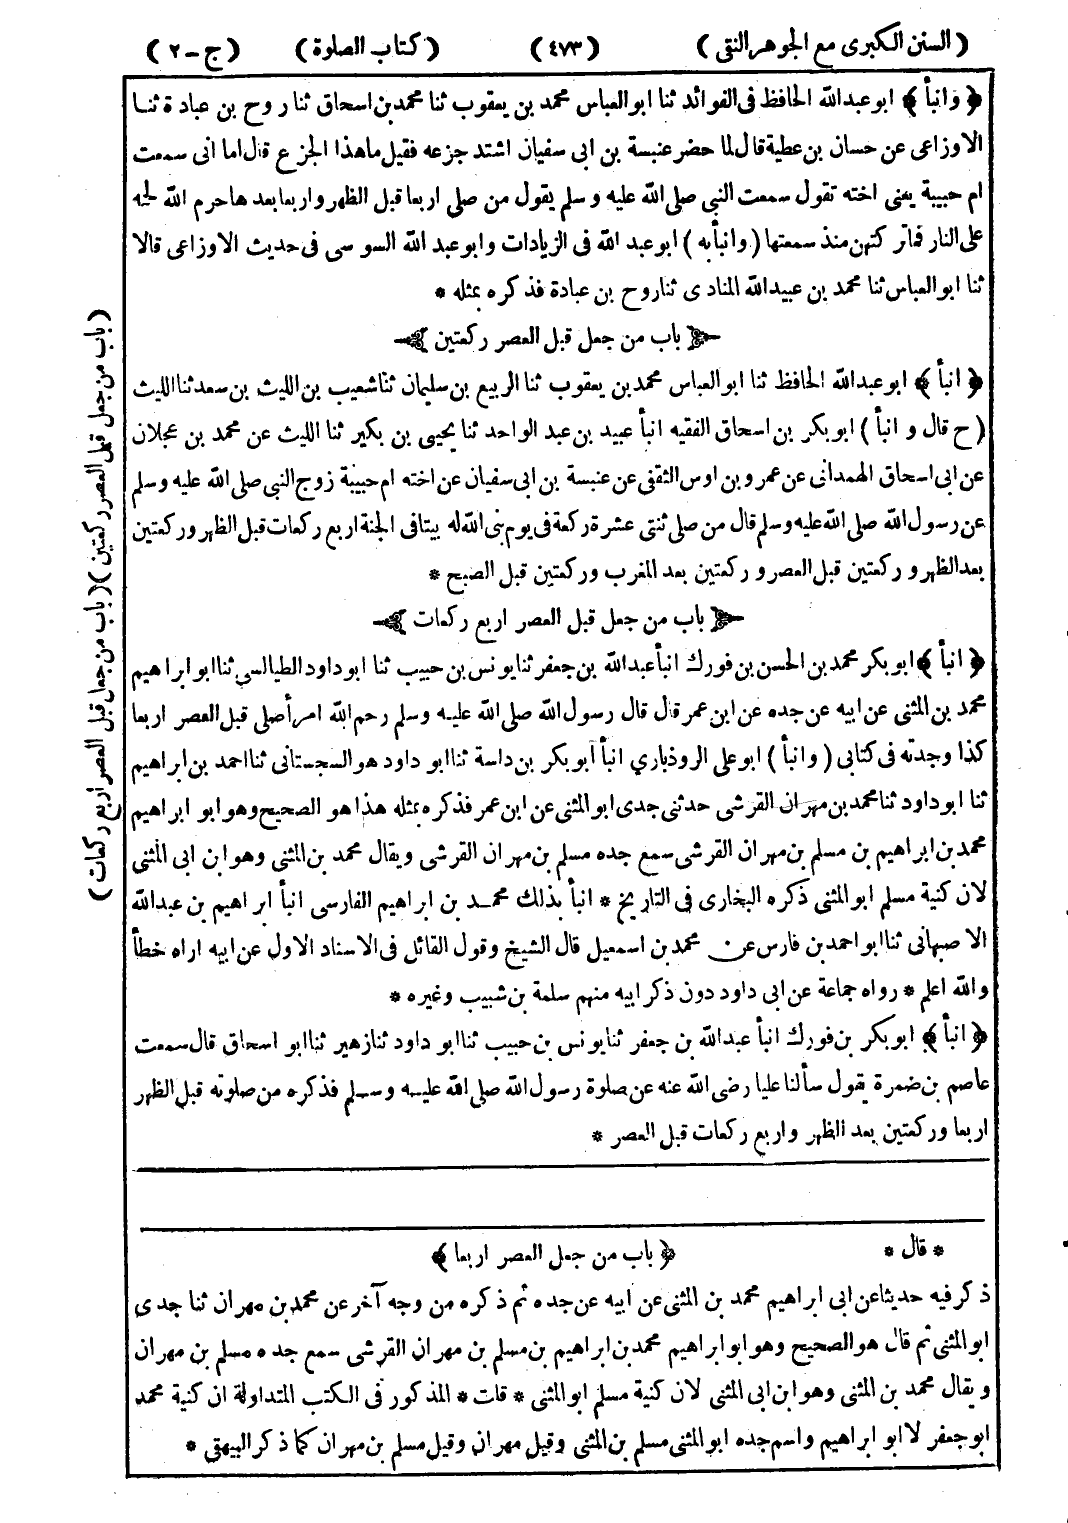 ( السنن الكبرى مع الجوهر النقى ) ( ٤٧٣ ) ( كتاب الصلوة ) ( ج - ٢ )
﴿ وانبأ ﴾ ابو عبدالله الحافظ فى الفوائد ثنا ابو العباس محمد بن يعقوب ثنا محمد بن اسحاق ثنا روح بن عبادة ثنا
الاوزاعى عن حسان بن عطية قال لما حضر عنبسة بن ابى سفيان اشتد جزعه فقيل ما هذا الجزع قال اما انى سمعت
ام حبيبة يعنى اخته تقول سمعت النبى صلى الله عليه وسلم يقول من صلى اربعا قبل الظهر واربعا بعدها حرم الله لحمه
على النار فما تركتهن منذ سمعتها ( وانبأ به ) ابو عبد الله فى الزيادات وابو عبد الله السوسى فى حديث الاوزاعى قالا
ثنا ابو العباس ثنا محمد بن عبيدالله المنادى ثنا روح بن عبادة فذكره بمثله *
باب من جعل قبل العصر ركعتين
﴿ انبأ ﴾ ابو عبدالله الحافظ ثنا ابو العباس محمد بن يعقوب ثنا الربيع بن سليمان ثنا شعيب بن الليث بن سعد ثنا الليث
( ح قال و انبأ ) ابو بكر بن اسحاق الفقيه انبأ عبيد بن عبد الواحد ثنا يحيى بن بكير ثنا الليث عن محمد بن عجلان
عن ابى اسحاق الهمدانى عن عمرو بن اوس الثقفى عن عنبسة بن ابى سفيان عن اخته ام حبيبة زوج النبى صلى الله عليه وسلم
عن رسول الله صلى الله عليه وسلم قال من صلى ثنتى عشرة ركعة فى يوم بنى الله له بيتا فى الجنة اربع ركعات قبل الظهر وركعتين
بعد الظهر و ركعتين قبل العصر و ركعتين بعد المغرب وركعتين قبل الصبح *
باب من جعل قبل العصر اربع ركعات
﴿ انبأ ﴾ ابو بكر محمد بن الحسن بن فورك انبأ عبدالله بن جعفر ثنا يونس بن حبيب ثنا ابو داود الطيالسى ثنا ابو ابراهيم
محمد بن المثنى عن ابيه عن جده عن ابن عمر قال قال رسول الله صلى الله عليه وسلم رحم الله امرأ صلى قبل العصر اربعا
كذا وجدته فى كتابى ( وانبأ ) ابو على الروذبارى انبأ ابو بكر بن داسة ثنا ابو داود هو السجستانى ثنا احمد بن ابراهيم
ثنا ابو داود ثنا محمد بن مهران القرشى حدثنى جدى ابو المثنى عن ابن عمر فذكره بمثله هذا هو الصحيح وهو ابو ابراهيم
محمد بن ابراهيم بن مسلم بن مهران القرشى سمع جده مسلم بن مهران القرشى ويقال محمد بن المثنى وهو ابن ابى المثنى
لان كنية مسلم ابو المثنى ذكره البخارى فى التاريخ * انبأ بذلك محمد بن ابراهيم الفارسى انبأ ابراهيم بن عبدالله
الاصبهانى ثنا ابو احمد بن فارس عن محمد بن اسمعيل قال الشيخ وقول القائل فى الاسناد الاول عن ابيه اراه خطأ
والله اعلم * رواه جماعة عن ابى داود دون ذكر ابيه منهم سلمة بن شبيب وغيره *
﴿ انبأ ﴾ ابو بكر بن فورك انبأ عبدالله بن جعفر ثنا يونس بن حبيب ثنا ابو داود ثنا زهير ثنا ابو اسحاق قال سمعت
عاصم بن ضمرة يقول سألنا عليا رضى الله عنه عن صلوة رسول الله صلى الله عليه وسلم فذكره من صلوته قبل الظهر
اربعا وركعتين بعد الظهر واربع ركعات قبل العصر *
* قال * ﴿ باب من جعل العصر اربعا ﴾
ذكر فيه حديثا عن ابى ابراهيم محمد بن المثنى عن ابيه عن جده ثم ذكره من وجه آخر عن محمد بن مهران ثنا جدى
ابو المثنى ثم قال هو الصحيح وهو ابو ابراهيم محمد بن ابراهيم بن مسلم بن مهران القرشى سمع جده مسلم بن مهران
ويقال محمد بن المثنى وهو ابن ابى المثنى لان كنية مسلم ابو المثنى * قلت * المذكور فى الكتب المتداولة ان كنية محمد
ابو جعفر لا ابو ابراهيم واسم جده ابو المثنى مسلم بن المثنى وقيل مهران وقيل مسلم بن مهران كما ذكر البيهقى *
( باب من جعل قبل العصر ركعتين ) ( باب من جعل قبل العصر اربع ركعات )